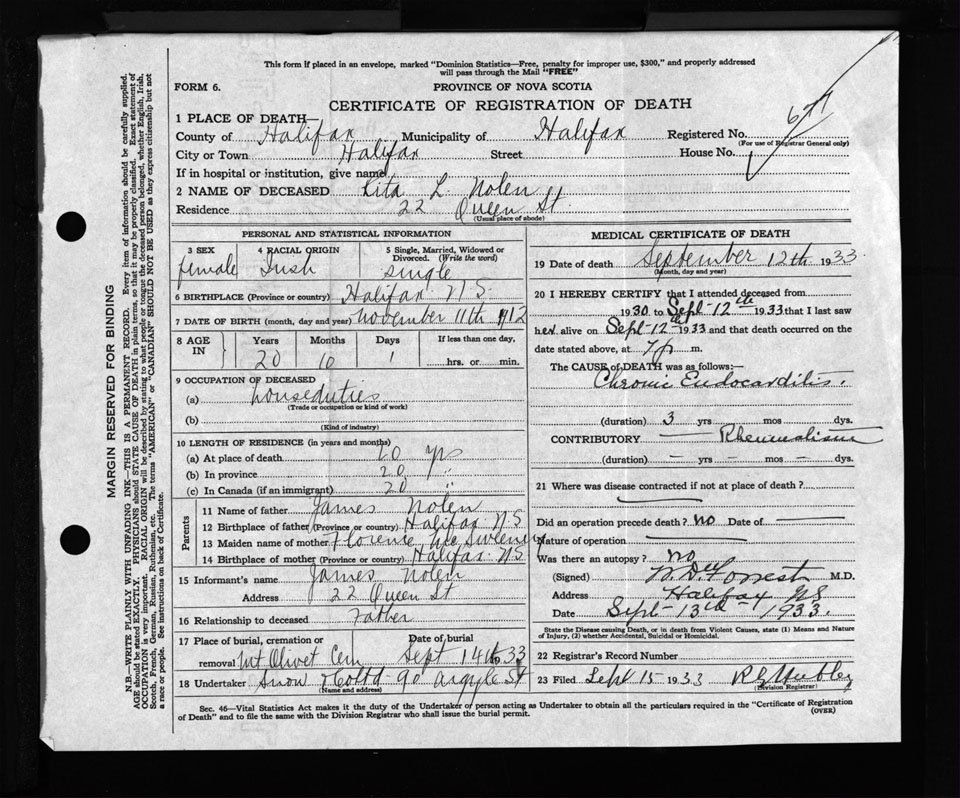 This form if placed in an envelope, marked "Dominion Statistics—Free, penalty for improper use, $300," and properly addressed
will pass through the Mail "FREE"
FORM 6.
PROVINCE OF NOVA SCOTIA
CERTIFICATE OF REGISTRATION OF DEATH
677
1 PLACE OF DEATH—
County of Halifax Municipality of Halifax Registered No.
(For use of Registrar General only)
City or Town Halifax Street House No.
If in hospital or institution, give name
2 NAME OF DECEASED Rita L. Nolen
Residence 22 Queen St.
(Usual place of abode)
PERSONAL AND STATISTICAL INFORMATION
3 SEX female
4 RACIAL ORIGIN Irish
5 Single, Married, Widowed or Divorced. (Write the word) single
6 BIRTHPLACE (Province or country) Halifax N.S.
7 DATE OF BIRTH (month, day and year) November 11th 1912
8 AGE IN Years Months Days If less than one day,
20 10 1 hrs. or min.
9 OCCUPATION OF DECEASED
(a) houseduties
(Trade or occupation or kind of work)
(b)
(Kind of industry)
10 LENGTH OF RESIDENCE (in years and months)
(a) At place of death 20 yrs
(b) In province 20 "
(c) In Canada (if an immigrant) 20 "
Parents
11 Name of father James Nolen
12 Birthplace of father (Province or country) Halifax N.S
13 Maiden name of mother Florence Mc Sweeney
14 Birthplace of mother (Province or country) Halifax N.S.
15 Informant's name James Nolen
Address 22 Queen St
16 Relationship to deceased Father
17 Place of burial, cremation or removal Mt Olivet Cem Date of burial Sept 14th 33
18 Undertaker Snow & Co Ltd 90 Argyle St
(Name and address)
MEDICAL CERTIFICATE OF DEATH
19 Date of death September 12th 1933
(Month, day and year)
20 I HEREBY CERTIFY that I attended deceased from
1930 to Sept-12th 1933 that I last saw
her alive on Sept-12th 1933 and that death occurred on the
date stated above, at 7 p. m.
The CAUSE of DEATH was as follows:—
Chronic Endocarditis.
(duration) 3 yrs mos dys.
CONTRIBUTORY — Rheumatism
(duration) — yrs — mos — dys.
21 Where was disease contracted if not at place of death?
Did an operation precede death? No Date of —
Nature of operation —
Was there an autopsy? No
(Signed) Forrest M.D.
Address Halifax NS
Date Sept-13th-1933.
State the Disease causing Death, or in death from Violent Causes, state (1) Means and Nature
of Injury, (2) whether Accidental, Suicidal or Homicidal.
22 Registrar's Record Number
23 Filed Sept 15-1933
(Division Registrar)
Sec. 46—Vital Statistics Act makes it the duty of the Undertaker or person acting as Undertaker to obtain all the particulars required in the "Certificate of Registration
of Death" and to file the same with the Division Registrar who shall issue the burial permit.
(OVER)
MARGIN RESERVED FOR BINDING
N.B.—WRITE PLAINLY WITH UNFADING INK—THIS IS A PERMANENT RECORD. Every item of information should be carefully supplied.
AGE should be stated EXACTLY. PHYSICIANS should STATE CAUSE OF DEATH in plain terms, so that it may be properly classified. Exact statement of
OCCUPATION is very important. RACIAL ORIGIN will be described by stating to what people or tongue the deceased person belonged, whether English, Irish,
Scotch, French, German, Russian, Ruthenian, etc. The terms "AMERICAN" or "CANADIAN" SHOULD NOT BE USED as they express citizenship but not
a race or people. See instructions on back of Certificate.